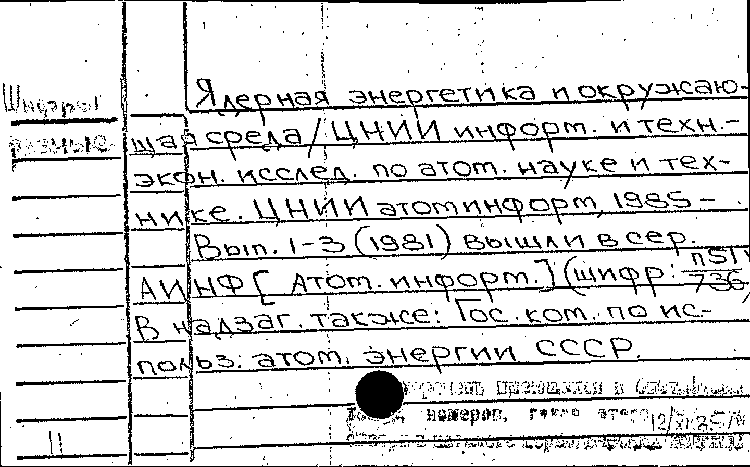 Шифры
разные
Ядерная энергетика и окружаю-
щая среда / ЦНИИ информ. и техн.-
экон. исслед. по атом. науке и тех-
нике. ЦНИИ атоминформ, 1985 -
Вып. 1-3 (1981) вышли в сер.
АИНФ [Атом. информ.] (шифр: П517
736)
В надзаг. также: Гос. ком. по ис-
польз. атом. энергии СССР.
номеров,
11